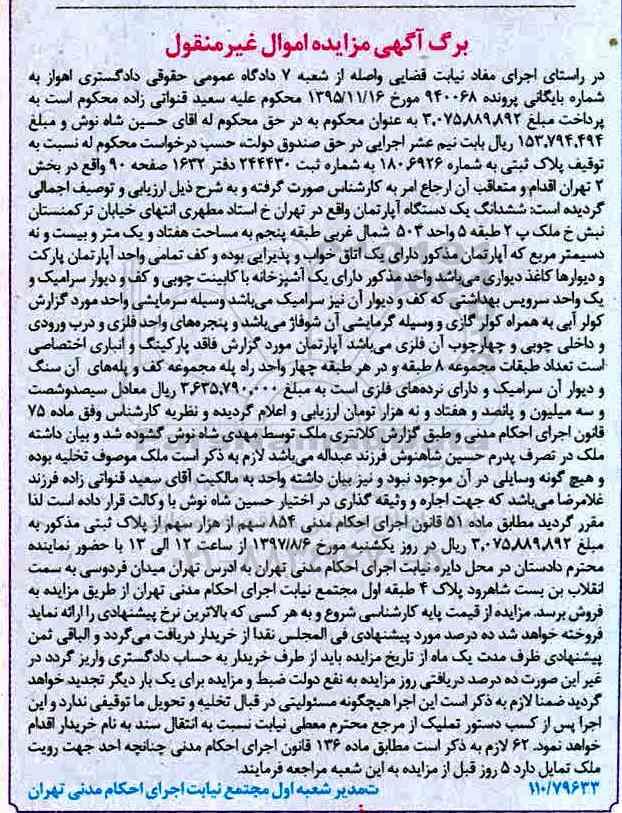 برگ آگهی مزایده اموال غیرمنقول
در راستای اجرای مفاد نیابت قضایی واصله از شعبه ۷ دادگاه عمومی حقوقی دادگستری اهواز به
شماره بایگانی پرونده ۹۴۰۰۶۸ مورخ ۱۳۹۵/۱۱/۱۶ محکوم علیه سعید قنواتی زاده محکوم است به
پرداخت مبلغ ۳,۰۷۵,۸۸۹,۸۹۲ به عنوان محکوم به در حق محکوم له اقای حسین شاه نوش و مبلغ
۱۵۳,۷۹۴,۴۹۴ ریال بابت نیم عشر اجرایی در حق صندوق دولت، حسب درخواست محکوم له نسبت به
توقیف پلاک ثبتی به شماره ۱۸۰,۶۹۲۶ به شماره ثبت ۲۴۴۴۳۰ دفتر ۱۶۳۲ صفحه ۹۰ واقع در بخش
۲ تهران اقدام و متعاقب آن ارجاع امر به کارشناس صورت گرفته و به شرح ذیل ارزیابی و توصیف اجمالی
گردیده است: ششدانگ یک دستگاه آپارتمان واقع در تهران خ استاد مطهری انتهای خیابان ترکمنستان
نبش خ ملک پ ۲ طبقه ۵ واحد ۵۰۴ شمال غربی طبقه پنجم به مساحت هفتاد و یک متر و بیست و نه
دسیمتر مربع که آپارتمان مذکور دارای یک اتاق خواب و پذیرایی بوده و کف تمامی واحد آپارتمان پارکت
و دیوارها کاغذ دیواری می‌باشد واحد مذکور دارای یک آشپزخانه با کابینت چوبی و کف و دیوار سرامیک و
یک واحد سرویس بهداشتی که کف و دیوار آن نیز سرامیک می‌باشد وسیله سرمایشی واحد مورد گزارش
کولر آبی به همراه کولر گازی و وسیله گرمایشی آن شوفاژ می‌باشد و پنجره‌های واحد فلزی و درب ورودی
و داخلی چوبی و چهارچوب آن فلزی می‌باشد آپارتمان مورد گزارش فاقد پارکینگ و انباری اختصاصی
است تعداد طبقات مجموعه ۸ طبقه و در هر طبقه چهار واحد راه پله مجموعه کف و پله‌های آن سنگ
و دیوار آن سرامیک و دارای نرده‌های فلزی است به مبلغ ۳,۶۳۵,۷۹۰,۰۰۰ ریال معادل سیصدوشصت
و سه میلیون و پانصد و هفتاد و نه هزار تومان ارزیابی و اعلام گردیده و نظریه کارشناس وفق ماده ۷۵
قانون اجرای احکام مدنی و طبق گزارش کلانتری ملک توسط مهدی شاه نوش گشوده شد و بیان داشته
ملک در تصرف پدرم حسین شاهنوش فرزند عبداله می‌باشد لازم به ذکر است ملک موصوف تخلیه بوده
و هیچ گونه وسایلی در آن موجود نبود و نیز بیان داشته واحد به مالکیت آقای سعید قنواتی زاده فرزند
غلامرضا می‌باشد که جهت اجاره و وثیقه گذاری در اختیار حسین شاه نوش با وکالت قرار داده است لذا
مقرر گردید مطابق ماده ۵۱ قانون اجرای احکام مدنی ۸۵۴ سهم از هزار سهم از پلاک ثبتی مذکور به
مبلغ ۳,۰۷۵,۸۸۹,۸۹۲ ریال در روز یکشنبه مورخ ۱۳۹۷/۸/۶ از ساعت ۱۲ الی ۱۳ با حضور نماینده
محترم دادستان در محل دایره نیابت اجرای احکام مدنی تهران به ادرس تهران میدان فردوسی به سمت
انقلاب بن بست شاهرود پلاک ۴ طبقه اول مجتمع نیابت اجرای احکام مدنی تهران از طریق مزایده به
فروش برسد. مزایده از قیمت پایه کارشناسی شروع و به هر کسی که بالاترین نرخ پیشنهادی را ارائه نماید
فروخته خواهد شد ده درصد مورد پیشنهادی فی المجلس نقدا از خریدار دریافت می‌گردد و الباقی ثمن
پیشنهادی ظرف مدت یک ماه از تاریخ مزایده باید از طرف خریدار به حساب دادگستری واریز گردد در
غیر این صورت ده درصد دریافتی روز مزایده به نفع دولت ضبط و مزایده برای یک بار دیگر تجدید خواهد
گردید ضمنا لازم به ذکر است این اجرا هیچگونه مسئولیتی در قبال تخلیه و تحویل ما توقیفی ندارد و این
اجرا پس از کسب دستور تملیک از مرجع محترم معطی نیابت نسبت به انتقال سند به نام خریدار اقدام
خواهد نمود. ۶۲ لازم به ذکر است مطابق ماده ۱۳۶ قانون اجرای احکام مدنی چنانچه احد جهت رویت
ملک تمایل دارد ۵ روز قبل از مزایده به این شعبه مراجعه فرمایند.
۱۱۰/۷۹۶۳۳ تمدیر شعبه اول مجتمع نیابت اجرای احکام مدنی تهران